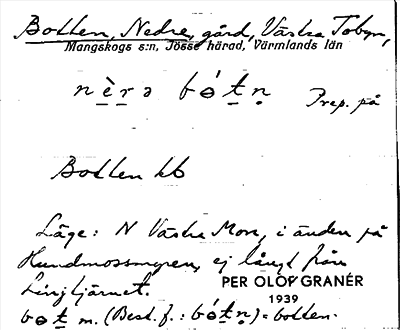 Botten, Nedre, gård, Västra Tobyn,
Mangskogs s:n, Jösse härad, Värmlands län
nèrə bótn Prep. på
Botten kb
Läge: N Västra Mon, i änden på
Hundmossmyren, ej långt från
Linjtjärnet.
PER OLOV GRANÉR
1939
bot m. (Best. f.: bótn) = botten.